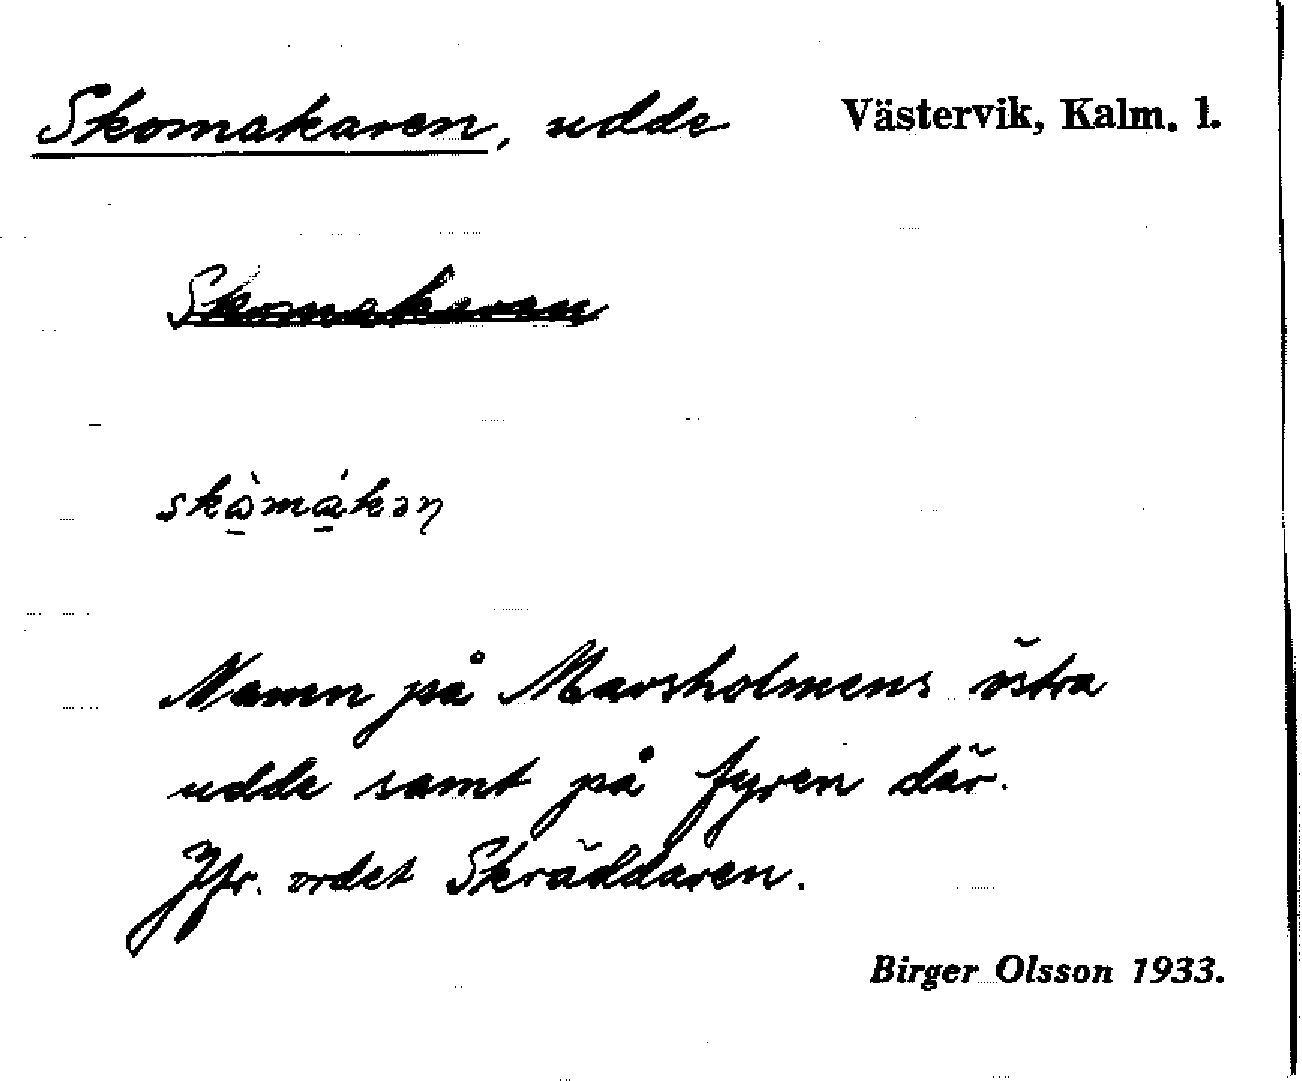 Skomakaren, udde Västervik, Kalm. l.
Skomakaren
Namn på Marsholmens östra
udde samt på fyren där.
Jfr. ordet Skräddaren.
Birger Olsson 1933.